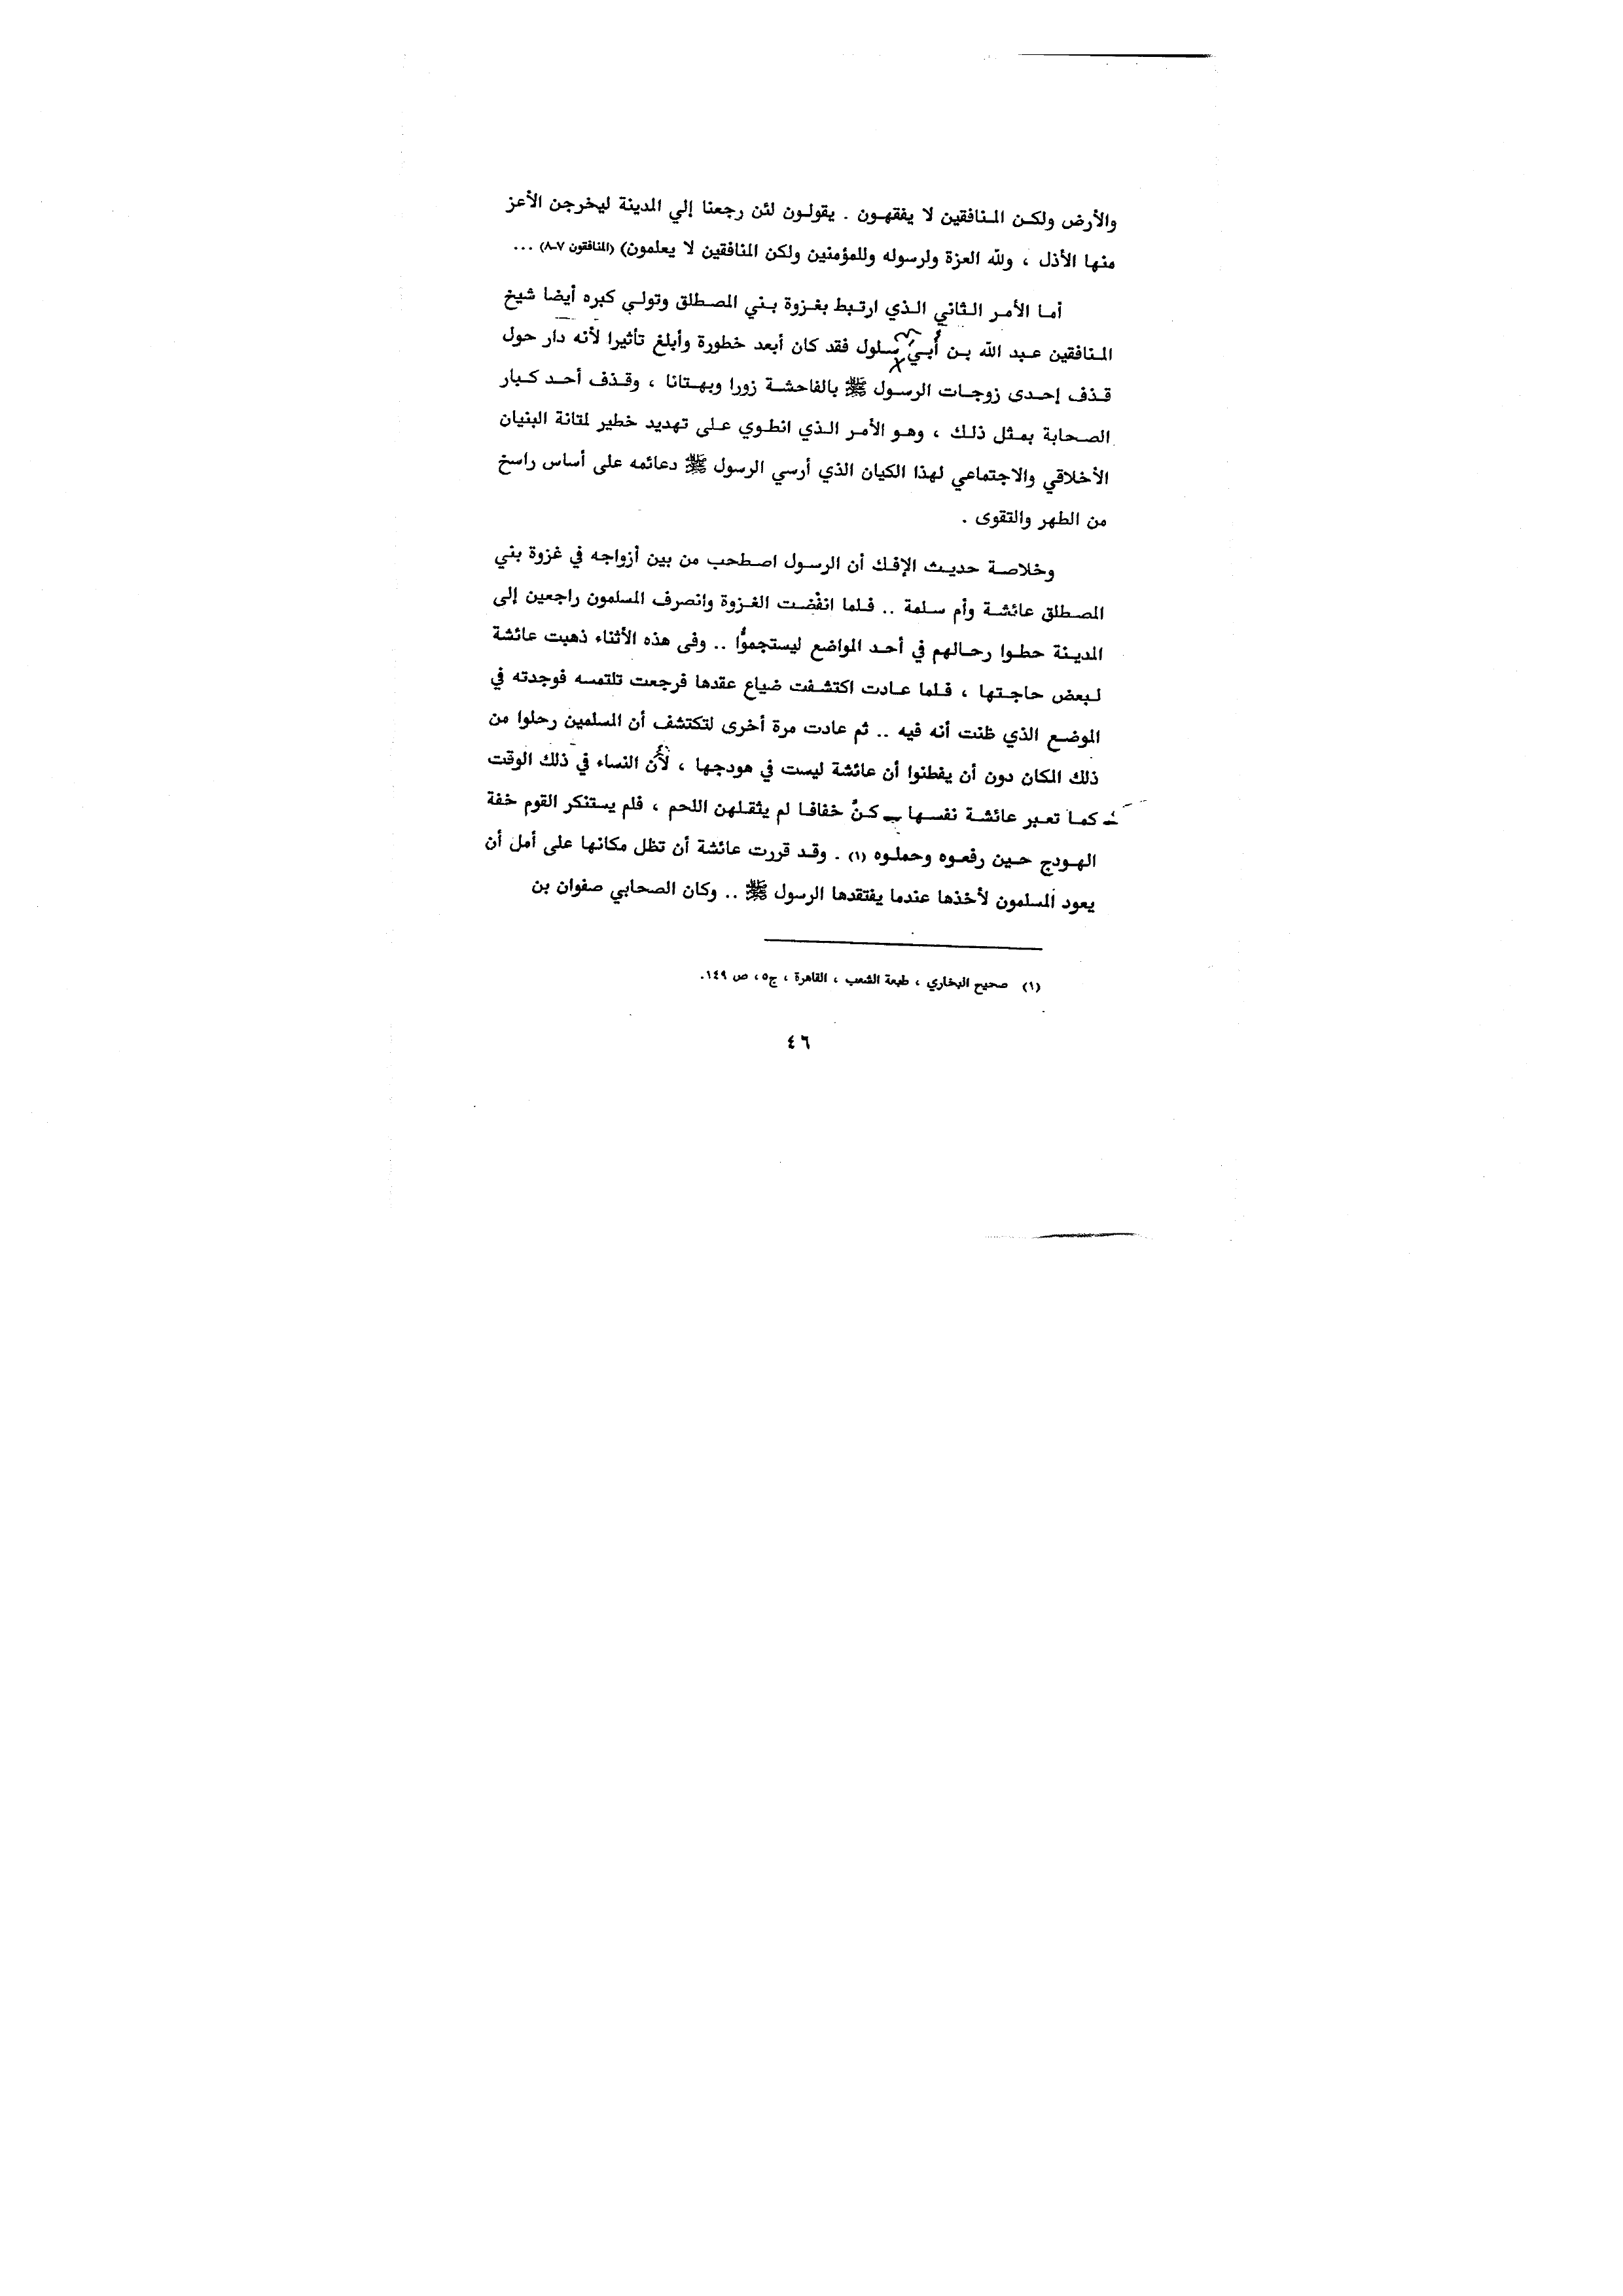 والأرض ولكن المنافقين لا يفقهون . يقولون لئن رجعنا إلي المدينة ليخرجن الأعز
منها الأذل ، ولله العزة ولرسوله وللمؤمنين ولكن المنافقين لا يعلمون) (المنافقون ٧-٨) ...
أما الأمر الثاني الذي ارتبط بغزوة بني المصطلق وتولي كبره أيضا شيخ
المنافقين عبد الله بن أُبي سلول فقد كان أبعد خطورة وأبلغ تأثيرا لأنه دار حول
قذف إحدى زوجات الرسول ﷺ بالفاحشة زورا وبهتانا ، وقذف أحد كبار
الصحابة بمثل ذلك ، وهو الأمر الذي انطوي على تهديد خطير لمتانة البنيان
الأخلاقي والاجتماعي لهذا الكيان الذي أرسي الرسول ﷺ دعائمه على أساس راسخ
من الطهر والتقوى .
وخلاصة حديث الإفك أن الرسول اصطحب من بين أزواجه في غزوة بني
المصطلق عائشة وأم سلمة .. فلما انفضت الغزوة وانصرف المسلمون راجعين إلى
المدينة حطوا رحالهم في أحد المواضع ليستجموُّا .. وفى هذه الأثناء ذهبت عائشة
لبعض حاجتها ، فلما عادت اكتشفت ضياع عقدها فرجعت تلتمسه فوجدته في
الموضع الذي ظنت أنه فيه .. ثم عادت مرة أخرى لتكتشف أن المسلمين رحلوا من
ذلك المكان دون أن يفطنوا أن عائشة ليست في هودجها ، لأن النساء في ذلك الوقت
ـ كما تعبر عائشة نفسها ـ كنَّ خفافا لم يثقلهن اللحم ، فلم يستنكر القوم خفة
الهودج حين رفعوه وحملوه (١) . وقد قررت عائشة أن تظل مكانها على أمل أن
يعود المسلمون لأخذها عندما يفتقدها الرسول ﷺ .. وكان الصحابي صفوان بن
(١) صحيح البخاري ، طبعة الشعب ، القاهرة ، ج٥ ، ص ١٤٩.
٤٦